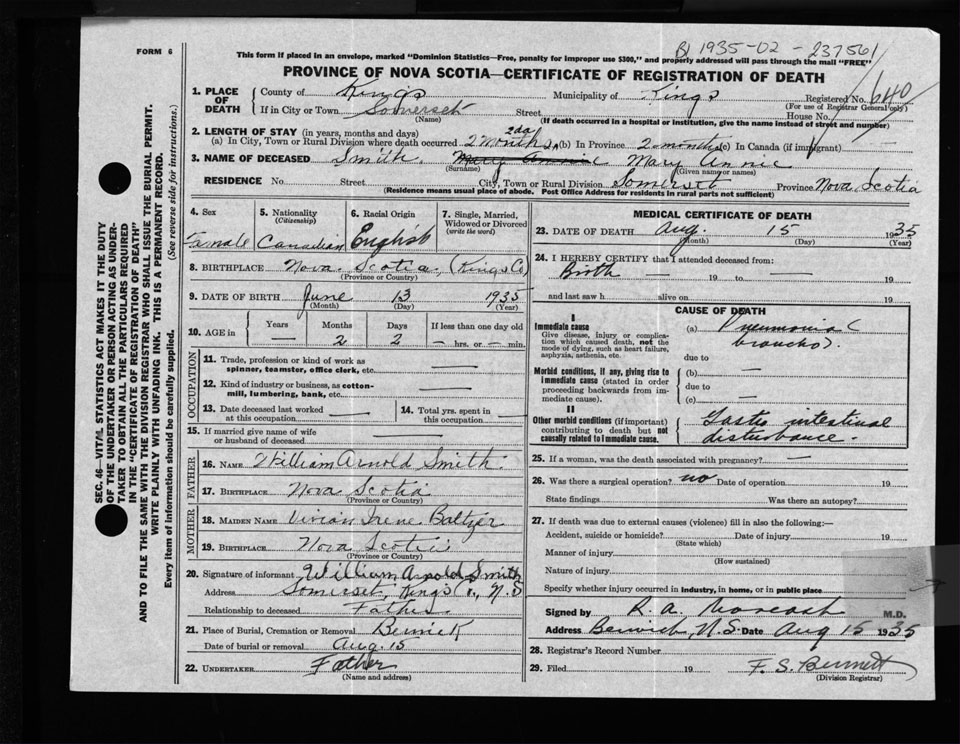 FORM 6
B 1935-02-237561
This form if placed in an envelope, marked "Dominion Statistics—Free, penalty for improper use $300," and properly addressed will pass through the mail "FREE"
PROVINCE OF NOVA SCOTIA—CERTIFICATE OF REGISTRATION OF DEATH
1. PLACE OF DEATH County of Kings Municipality of Kings Registered No. 640
(For use of Registrar General only)
If in City or Town Somerset Street House No.
(Name) (If death occurred in a hospital or institution, give the name instead of street and number)
2. LENGTH OF STAY (in years, months and days)
(a) In City, Town or Rural Division where death occurred 2 months 2da (b) In Province 2 months (c) In Canada (if immigrant) —
3. NAME OF DECEASED Smith Mary Annie Mary Annie
(Surname) (Given name or names)
RESIDENCE No. Street City, Town or Rural Division Somerset Province Nova Scotia
(Residence means usual place of abode. Post Office Address for residents in rural parts not sufficient)
SEC. 46—VITAL STATISTICS ACT MAKES IT THE DUTY
OF THE UNDERTAKER OR PERSON ACTING AS UNDER-
TAKER TO OBTAIN ALL THE PARTICULARS REQUIRED
IN THE "CERTIFICATE OF REGISTRATION OF DEATH"
AND TO FILE THE SAME WITH THE DIVISION REGISTRAR WHO SHALL ISSUE THE BURIAL PERMIT.
WRITE PLAINLY WITH UNFADING INK. THIS IS A PERMANENT RECORD.
Every item of information should be carefully supplied. (See reverse side for instructions.)
4. Sex Female
5. Nationality (Citizenship) Canadian
6. Racial Origin English
7. Single, Married, Widowed or Divorced (write the word)
8. BIRTHPLACE Nova Scotia (Kings Co)
(Province or Country)
9. DATE OF BIRTH June 13 1935
(Month) (Day) (Year)
10. AGE in Years Months Days If less than one day old
— 2 2 — hrs. or — min.
OCCUPATION
11. Trade, profession or kind of work as spinner, teamster, office clerk, etc. —
12. Kind of industry or business, as cotton-mill, lumbering, bank, etc. —
13. Date deceased last worked at this occupation —
14. Total yrs. spent in this occupation —
15. If married give name of wife or husband of deceased —
FATHER
16. NAME William Arnold Smith
17. BIRTHPLACE Nova Scotia
(Province or Country)
MOTHER
18. MAIDEN NAME Vivian Irene Baltzer
19. BIRTHPLACE Nova Scotia
(Province or Country)
20. Signature of informant William Arnold Smith
Address Somerset, Kings Co., N.S
Relationship to deceased Father
21. Place of Burial, Cremation or Removal Berwick
Date of burial or removal Aug. 15
22. UNDERTAKER Father
(Name and address)
MEDICAL CERTIFICATE OF DEATH
23. DATE OF DEATH Aug. 15 1935
(Month) (Day) (Year)
24. I HEREBY CERTIFY that I attended deceased from:
Birth — 19 to — 19
and last saw h alive on 19
CAUSE OF DEATH
I
Immediate cause
(Give disease, injury or complication which caused death, not the mode of dying, such as heart failure, asphyxia, asthenia, etc.
(a) Pneumonia (broncho).
due to
Morbid conditions, if any, giving rise to immediate cause (stated in order proceeding backwards from immediate cause).
(b) —
due to
(c) —
II
Other morbid conditions (if important) contributing to death but not causally related to immediate cause.
Gastro intestinal disturbance.
25. If a woman, was the death associated with pregnancy? —
26. Was there a surgical operation? no Date of operation 19
State findings Was there an autopsy?
27. If death was due to external causes (violence) fill in also the following:—
Accident, suicide or homicide? Date of injury 19
(State which)
Manner of injury
(How sustained)
Nature of injury
Specify whether injury occurred in industry, in home, or in public place
Signed by R. A. M.D.
Address Berwick, N.S. Date Aug 15 1935
28. Registrar's Record Number
29. Filed 19 F. S. Bennett
(Division Registrar)